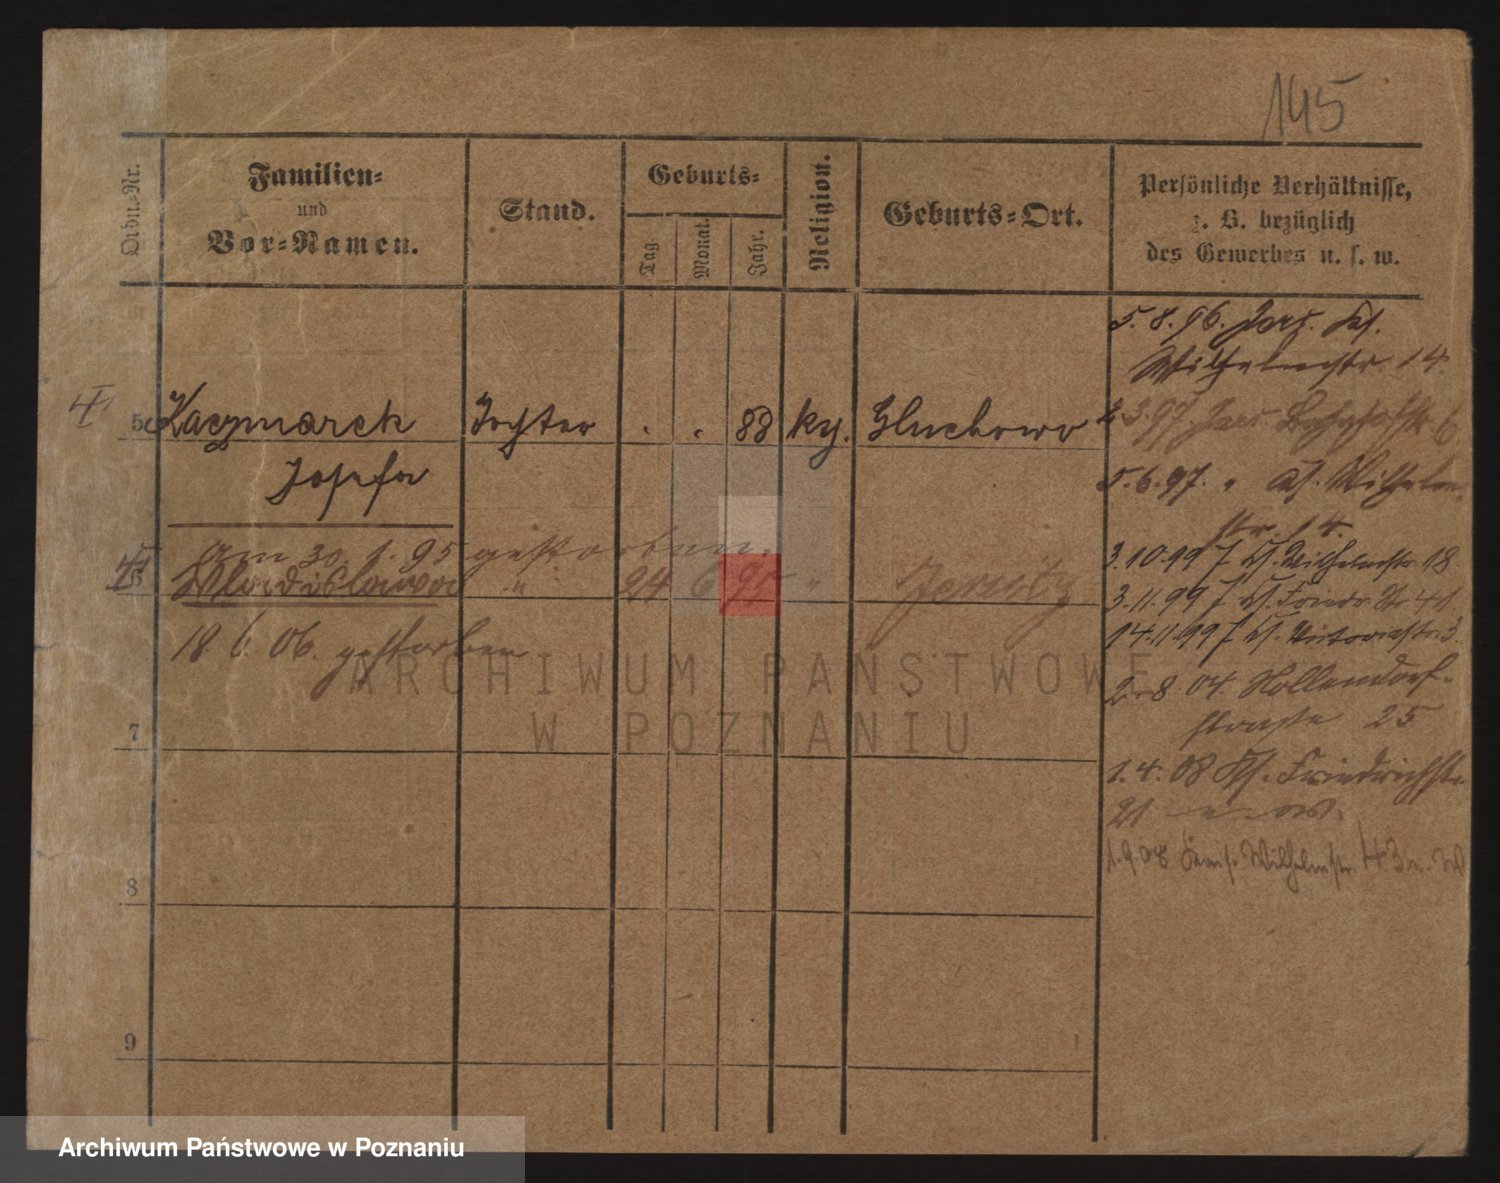 145
Ordn.-Nr.
Familien-
und
Vor-Namen.
Stand.
Geburts-
Tag.
Monat.
Jahr.
Religion.
Geburts-Ort.
Persönliche Verhältnisse,
z. B. bezüglich
des Gewerbes u. s. w.
5.8.96.
Wilhelmstr. 14.
5 Kaczmarek Tochter . . 88 Gluchowo
Josefa
3.97
5.6.97. " Wilhelm-
str. 14.
am 30.1.95 gestorben.
6 Wladislawa " 24 6 " Jersitz
3.10.99 Wilhelmstr. 18.
3.11.99
14.11.99 Victoriastr. 3.
18 6. 06. gestorben
2.8.04 Hollendorf-
strasse 25
7
1.4.08 Friedrichstr.
21
1.9.08 Wilhelmstr. 43
8
9
ARCHIWUM PAŃSTWOWE
W POZNANIU
Archiwum Państwowe w Poznaniu